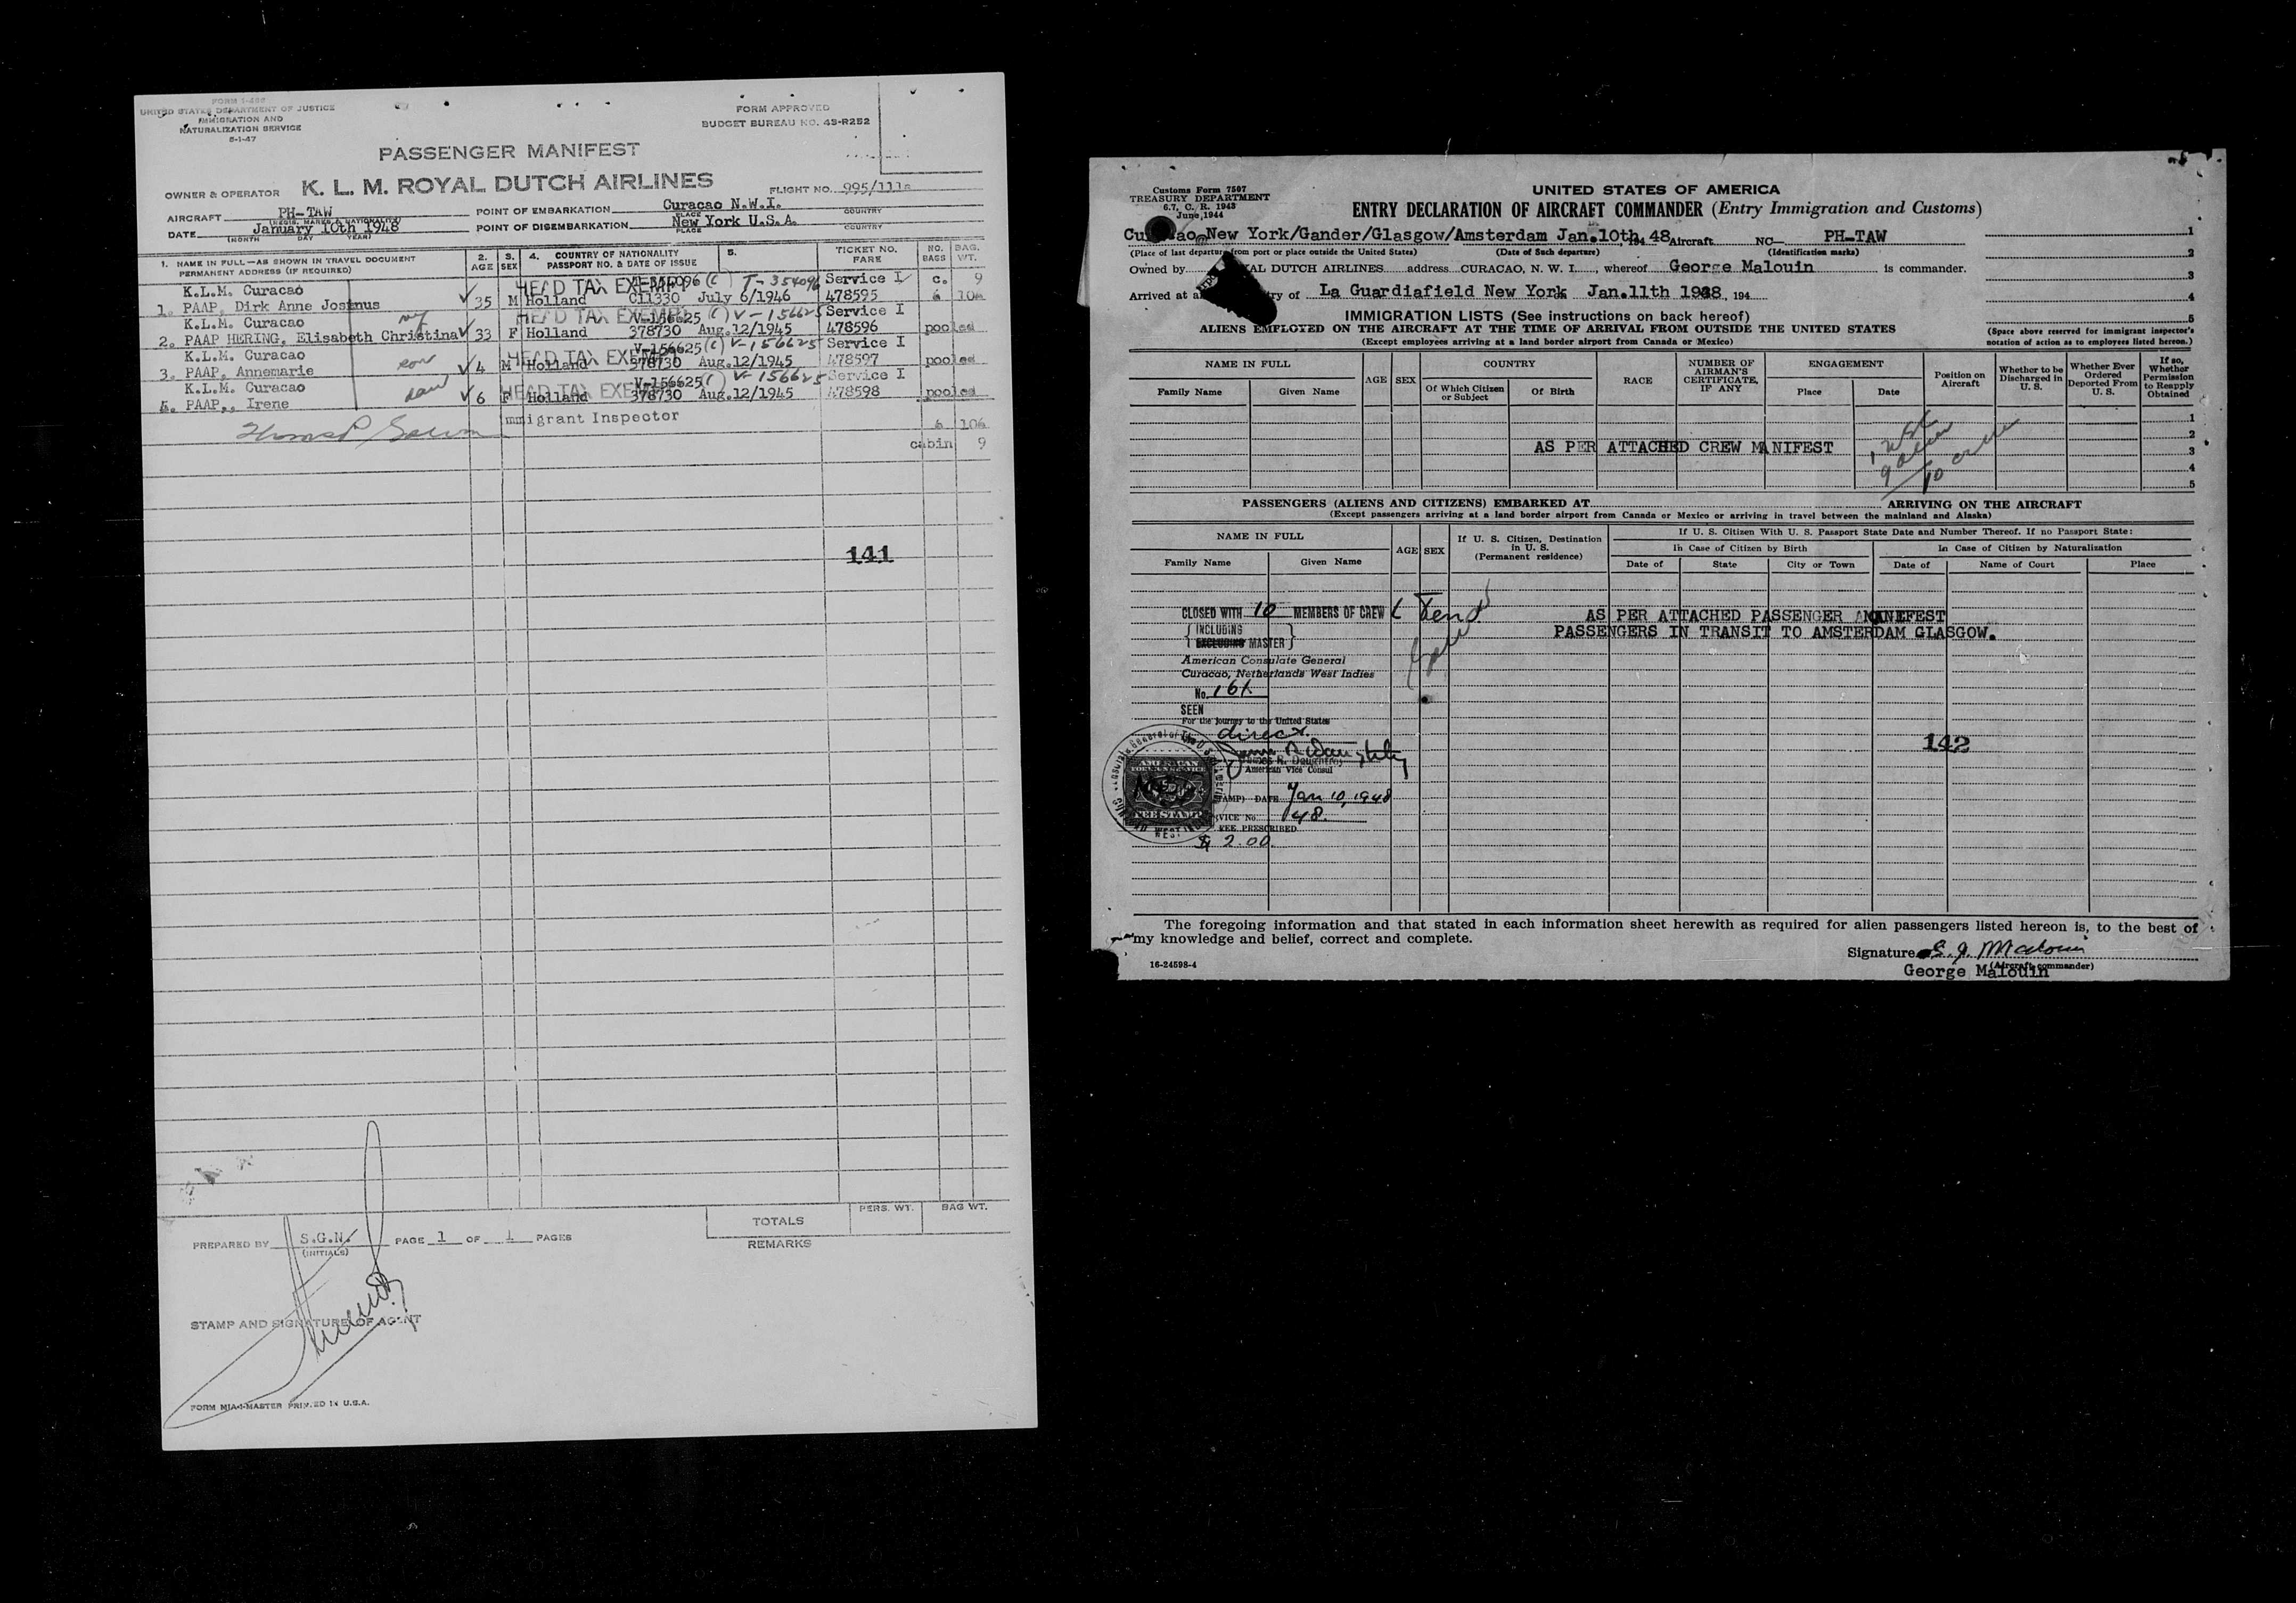 FORM I-466
UNITED STATES DEPARTMENT OF JUSTICE
IMMIGRATION AND
NATURALIZATION SERVICE
5-1-47
FORM APPROVED
BUDGET BUREAU NO. 43-R252
PASSENGER MANIFEST
OWNER & OPERATOR K. L. M. ROYAL DUTCH AIRLINES FLIGHT NO. 995/111a
AIRCRAFT PH-TAW POINT OF EMBARKATION Curacao N.W.I.
(REGIS. MARKS & NATIONALITY) PLACE COUNTRY
DATE January 10th 1948 POINT OF DISEMBARKATION New York U.S.A.
(MONTH DAY YEAR) PLACE COUNTRY
1. NAME IN FULL—AS SHOWN IN TRAVEL DOCUMENT
PERMANENT ADDRESS (IF REQUIRED)
2. AGE
3. SEX
4. COUNTRY OF NATIONALITY
PASSPORT NO. & DATE OF ISSUE
5.
TICKET NO.
FARE
NO. BAGS
BAG. WT.
K.L.M. Curacao HEAD TAX EXEMPT T-354096 (C) T-354096 Service I c. 9
1. PAAP, Dirk Anne Josinus 35 M Holland C11330 July 6/1946 478595 6 106
K.L.M. Curacao HEAD TAX EXEMPT V-156625 (C) V-156625 Service I
2. PAAP HERING, Elisabeth Christina 33 F Holland 378730 Aug.12/1945 478596 pooled
K.L.M. Curacao son HEAD TAX EXEMPT V-156625 (C) V-156625 Service I
3. PAAP, Annemarie 4 M Holland 378730 Aug.12/1945 478597 pooled
K.L.M. Curacao dau HEAD TAX EXEMPT V-156625 (C) V-156625 Service I
4. PAAP,, Irene 6 F Holland 378730 Aug.12/1945 478598 pooled
Immigrant Inspector
6 106
cabin 9
141
TOTALS PERS. WT. BAG WT.
REMARKS
PREPARED BY S.G.N. PAGE 1 OF 1 PAGES
(INITIALS)
STAMP AND SIGNATURE OF AGENT
FORM MIA-1-MASTER PRINTED IN U.S.A.
Customs Form 7507
TREASURY DEPARTMENT
6.7, C. R. 1943
June, 1944
UNITED STATES OF AMERICA
ENTRY DECLARATION OF AIRCRAFT COMMANDER (Entry Immigration and Customs)
Curacao New York/Gander/Glasgow/Amsterdam Jan.10th, 194 48 Aircraft NC— PH-TAW
(Place of last departure from port or place outside the United States) (Date of Such departure) (Identification marks)
Owned by ROYAL DUTCH AIRLINES address CURACAO, N. W. I., whereof George Malouin is commander.
Arrived at La Guardiafield New York Jan.11th 1948, 194
IMMIGRATION LISTS (See instructions on back hereof)
ALIENS EMPLOYED ON THE AIRCRAFT AT THE TIME OF ARRIVAL FROM OUTSIDE THE UNITED STATES
(Except employees arriving at a land border airport from Canada or Mexico)
1
2
3
4
5
(Space above reserved for immigrant inspector's
notation of action as to employees listed hereon.)
NAME IN FULL
Family Name Given Name
AGE SEX
COUNTRY
Of Which Citizen or Subject Of Birth
RACE
NUMBER OF AIRMAN'S CERTIFICATE, IF ANY
ENGAGEMENT
Place Date
Position on Aircraft
Whether to be Discharged in U. S.
Whether Ever Ordered Deported From U. S.
If so, Whether Permission to Reapply Obtained
AS PER ATTACHED CREW MANIFEST
1 usc
9 alien
10 crew
1
2
3
4
5
PASSENGERS (ALIENS AND CITIZENS) EMBARKED AT ARRIVING ON THE AIRCRAFT
(Except passengers arriving at a land border airport from Canada or Mexico or arriving in travel between the mainland and Alaska)
NAME IN FULL
Family Name Given Name
AGE SEX
If U. S. Citizen, Destination in U. S.
(Permanent residence)
If U. S. Citizen With U. S. Passport State Date and Number Thereof. If no Passport State:
In Case of Citizen by Birth In Case of Citizen by Naturalization
Date of State City or Town Date of Name of Court Place
CLOSED WITH 10 MEMBERS OF CREW
INCLUDING
EXCLUDING MASTER
AS PER ATTACHED PASSENGER MANIFEST
PASSENGERS IN TRANSIT TO AMSTERDAM GLASGOW.
American Consulate General
Curacao, Netherlands West Indies
No. 161
SEEN
For the journey to the United States
direct.
James R. Daughtry
American Vice Consul
AMERICAN
FEE STAMP
(STAMP) DATE Jan 10, 1948
SERVICE No. 48.
FEE PRESCRIBED
$ 2.00.
142
The foregoing information and that stated in each information sheet herewith as required for alien passengers listed hereon is, to the best of
my knowledge and belief, correct and complete.
Signature G. J. Malouin
(Aircraft commander)
George Malouin
16-24598-4